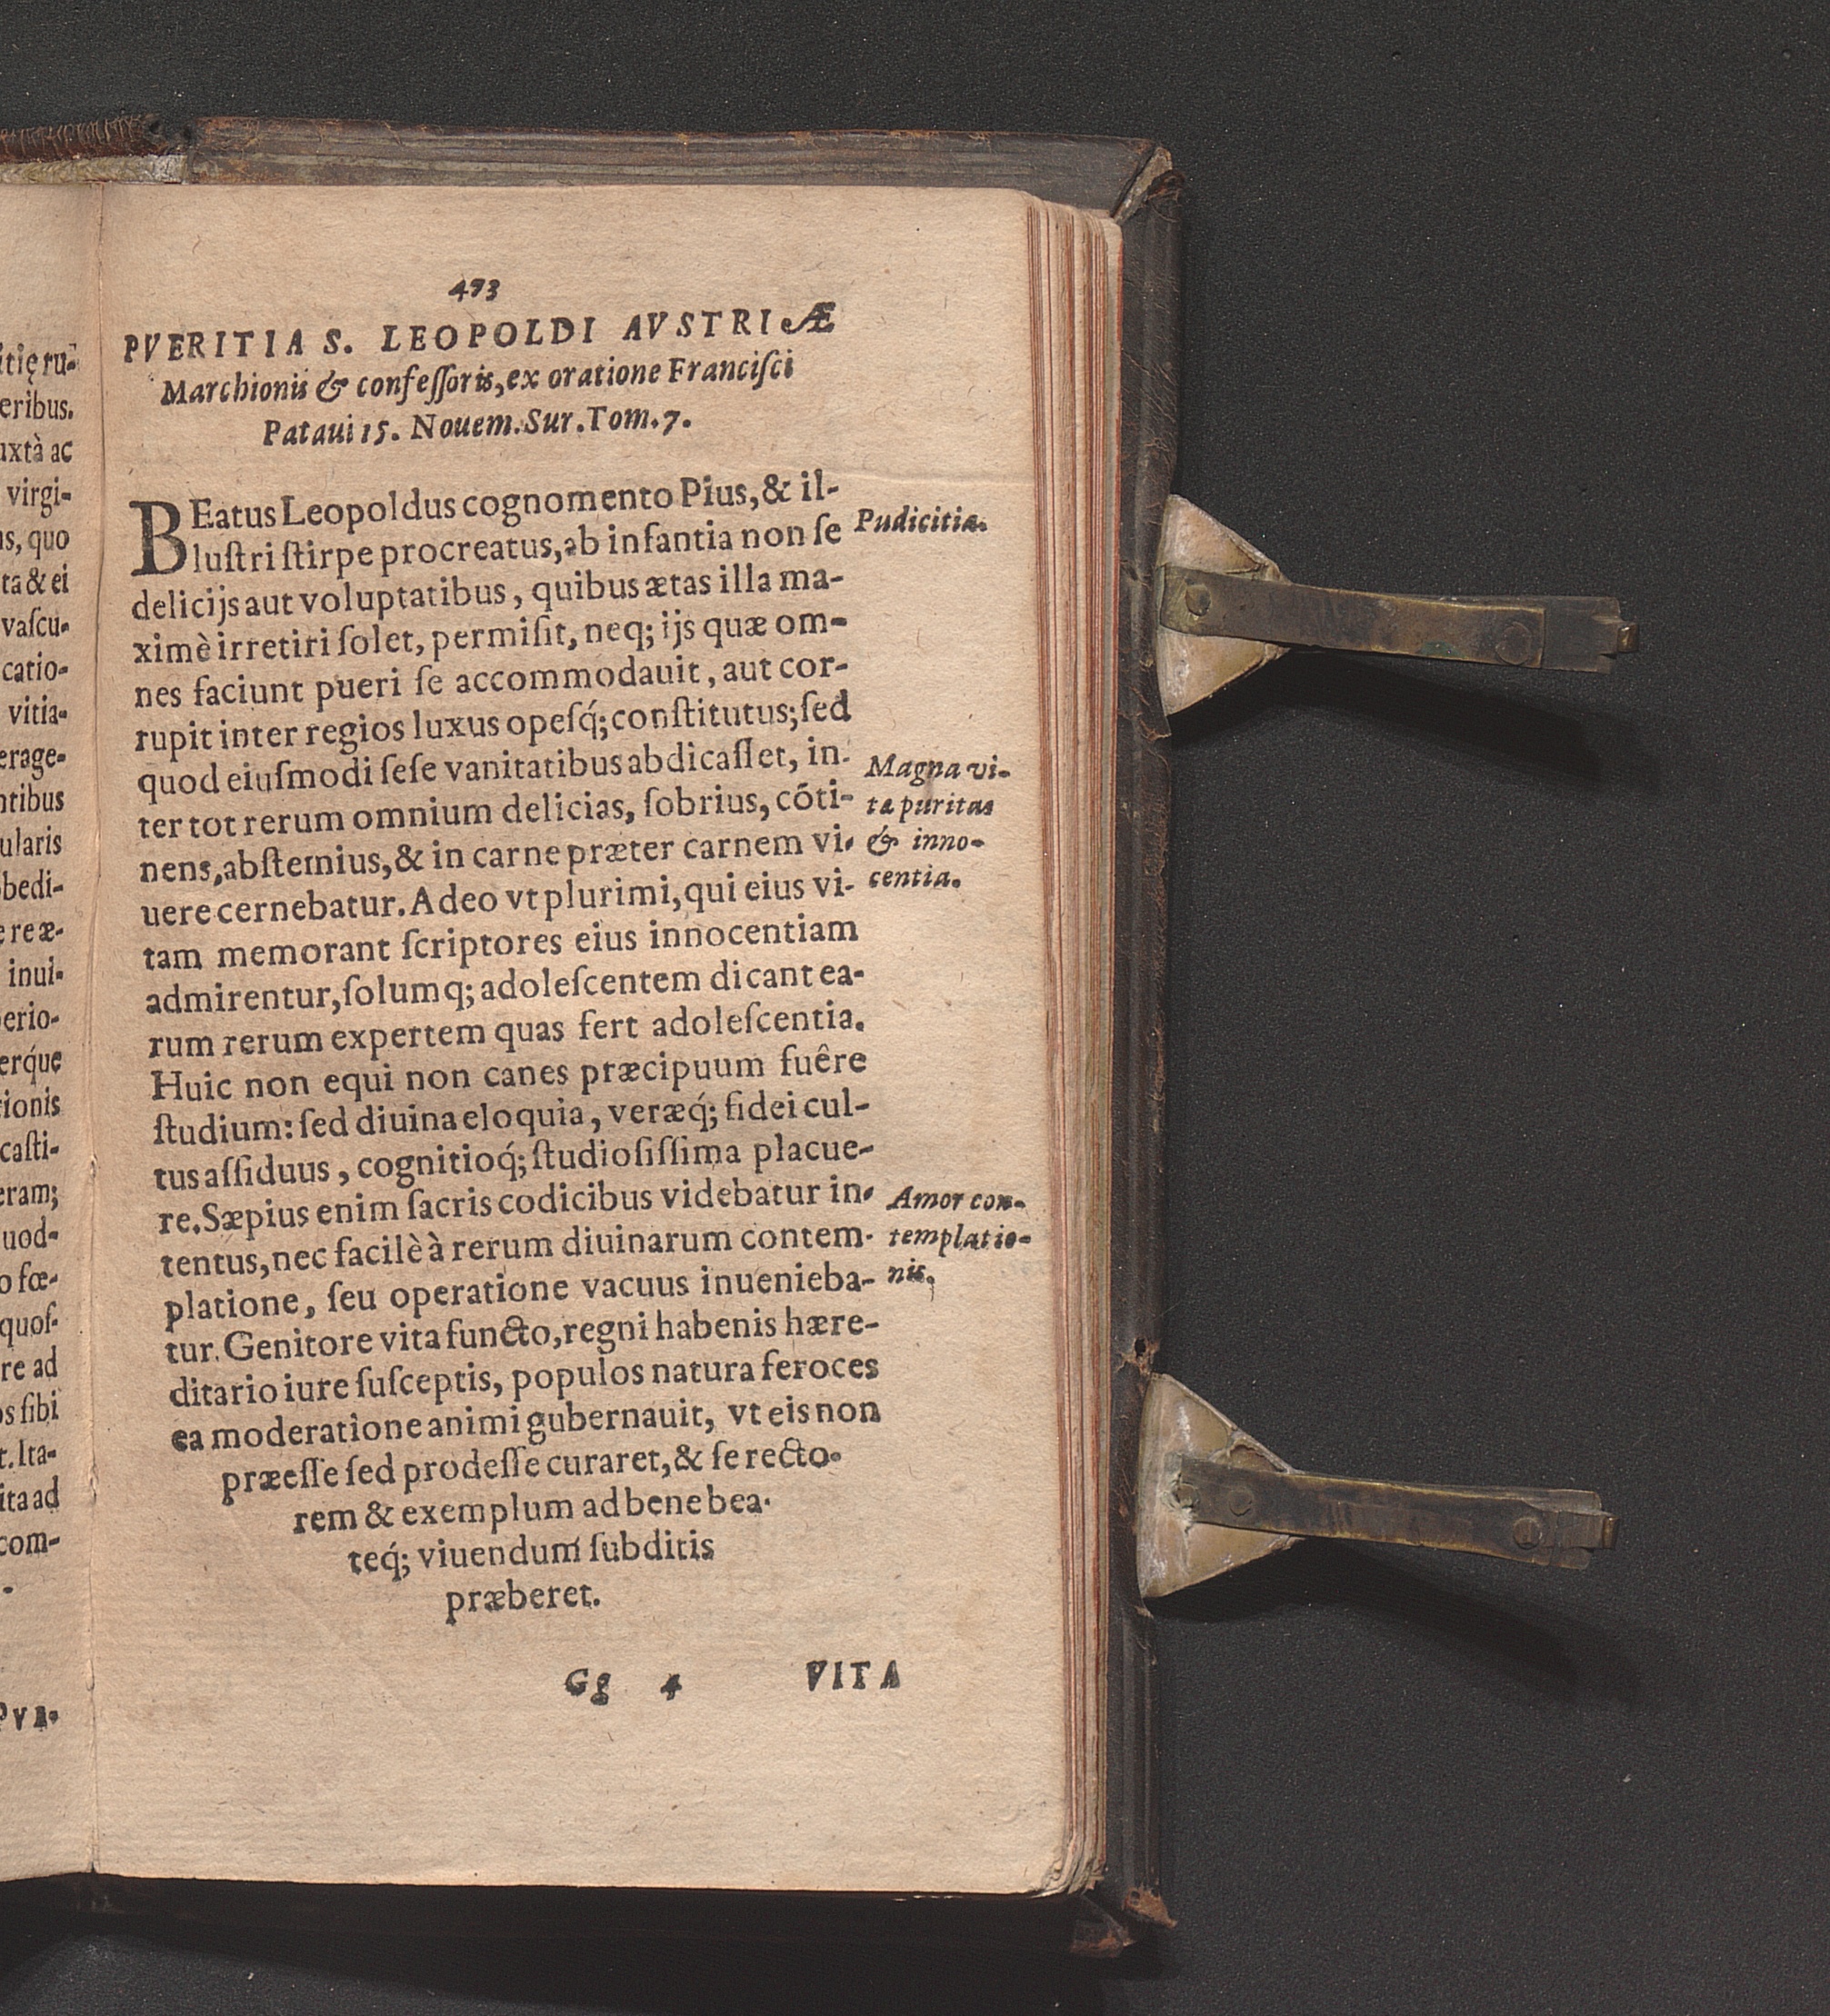 itię ru-
eribus.
uxtà ac
virgi-
us, quo
ta & ei
vaſcu-
catio-
vitia-
erage-
ntibus
ularis
obedi-
e re æ-
inui-
perio-
erq́ue
tionis
caſti-
eram;
uod-
o fœ-
quoſ-
re ad
os ſibi
t. Ita-
ita ad
com-
PVE-
473
PVERITIA S. LEOPOLDI AVSTRIÆ
Marchionis & confeſſoris, ex oratione Franciſci
Pataui 15. Nouem. Sur. Tom. 7.
BEatus Leopoldus cognomento Pius, & il-
luſtri ſtirpe procreatus, ab infantia non ſe
Pudicitia.
delicijs aut voluptatibus, quibus ætas illa ma-
ximè irretiri ſolet, permiſit, neq; ijs quæ om-
nes faciunt pueri ſe accommodauit, aut cor-
rupit inter regios luxus opeſq́; conſtitutus; ſed
quod eiuſmodi ſeſe vanitatibus abdicaſſet, in-
Magna vi-
ter tot rerum omnium delicias, ſobrius, cõti-
tæ puritas
nens, abſtemius, & in carne præter carnem vi-
& inno-
uere cernebatur. Adeo vt plurimi, qui eius vi-
centia.
tam memorant ſcriptores eius innocentiam
admirentur, ſolumq; adoleſcentem dicant ea-
rum rerum expertem quas fert adoleſcentia.
Huic non equi non canes præcipuum fuêre
ſtudium: ſed diuina eloquia, veræq́; fidei cul-
tus aſſiduus, cognitioq́; ſtudioſiſſima placue-
re. Sæpius enim ſacris codicibus videbatur in-
Amor con-
tentus, nec facilè à rerum diuinarum contem-
templatio-
platione, ſeu operatione vacuus inuenieba-
nis.
tur. Genitore vita functo, regni habenis hære-
ditario iure ſuſceptis, populos natura feroces
ea moderatione animi gubernauit, vt eis non
præeſſe ſed prodeſſe curaret, & ſe recto-
rem & exemplum ad bene bea-
teq́; viuendum ſubditis
præberet.
Gg 4 VITA